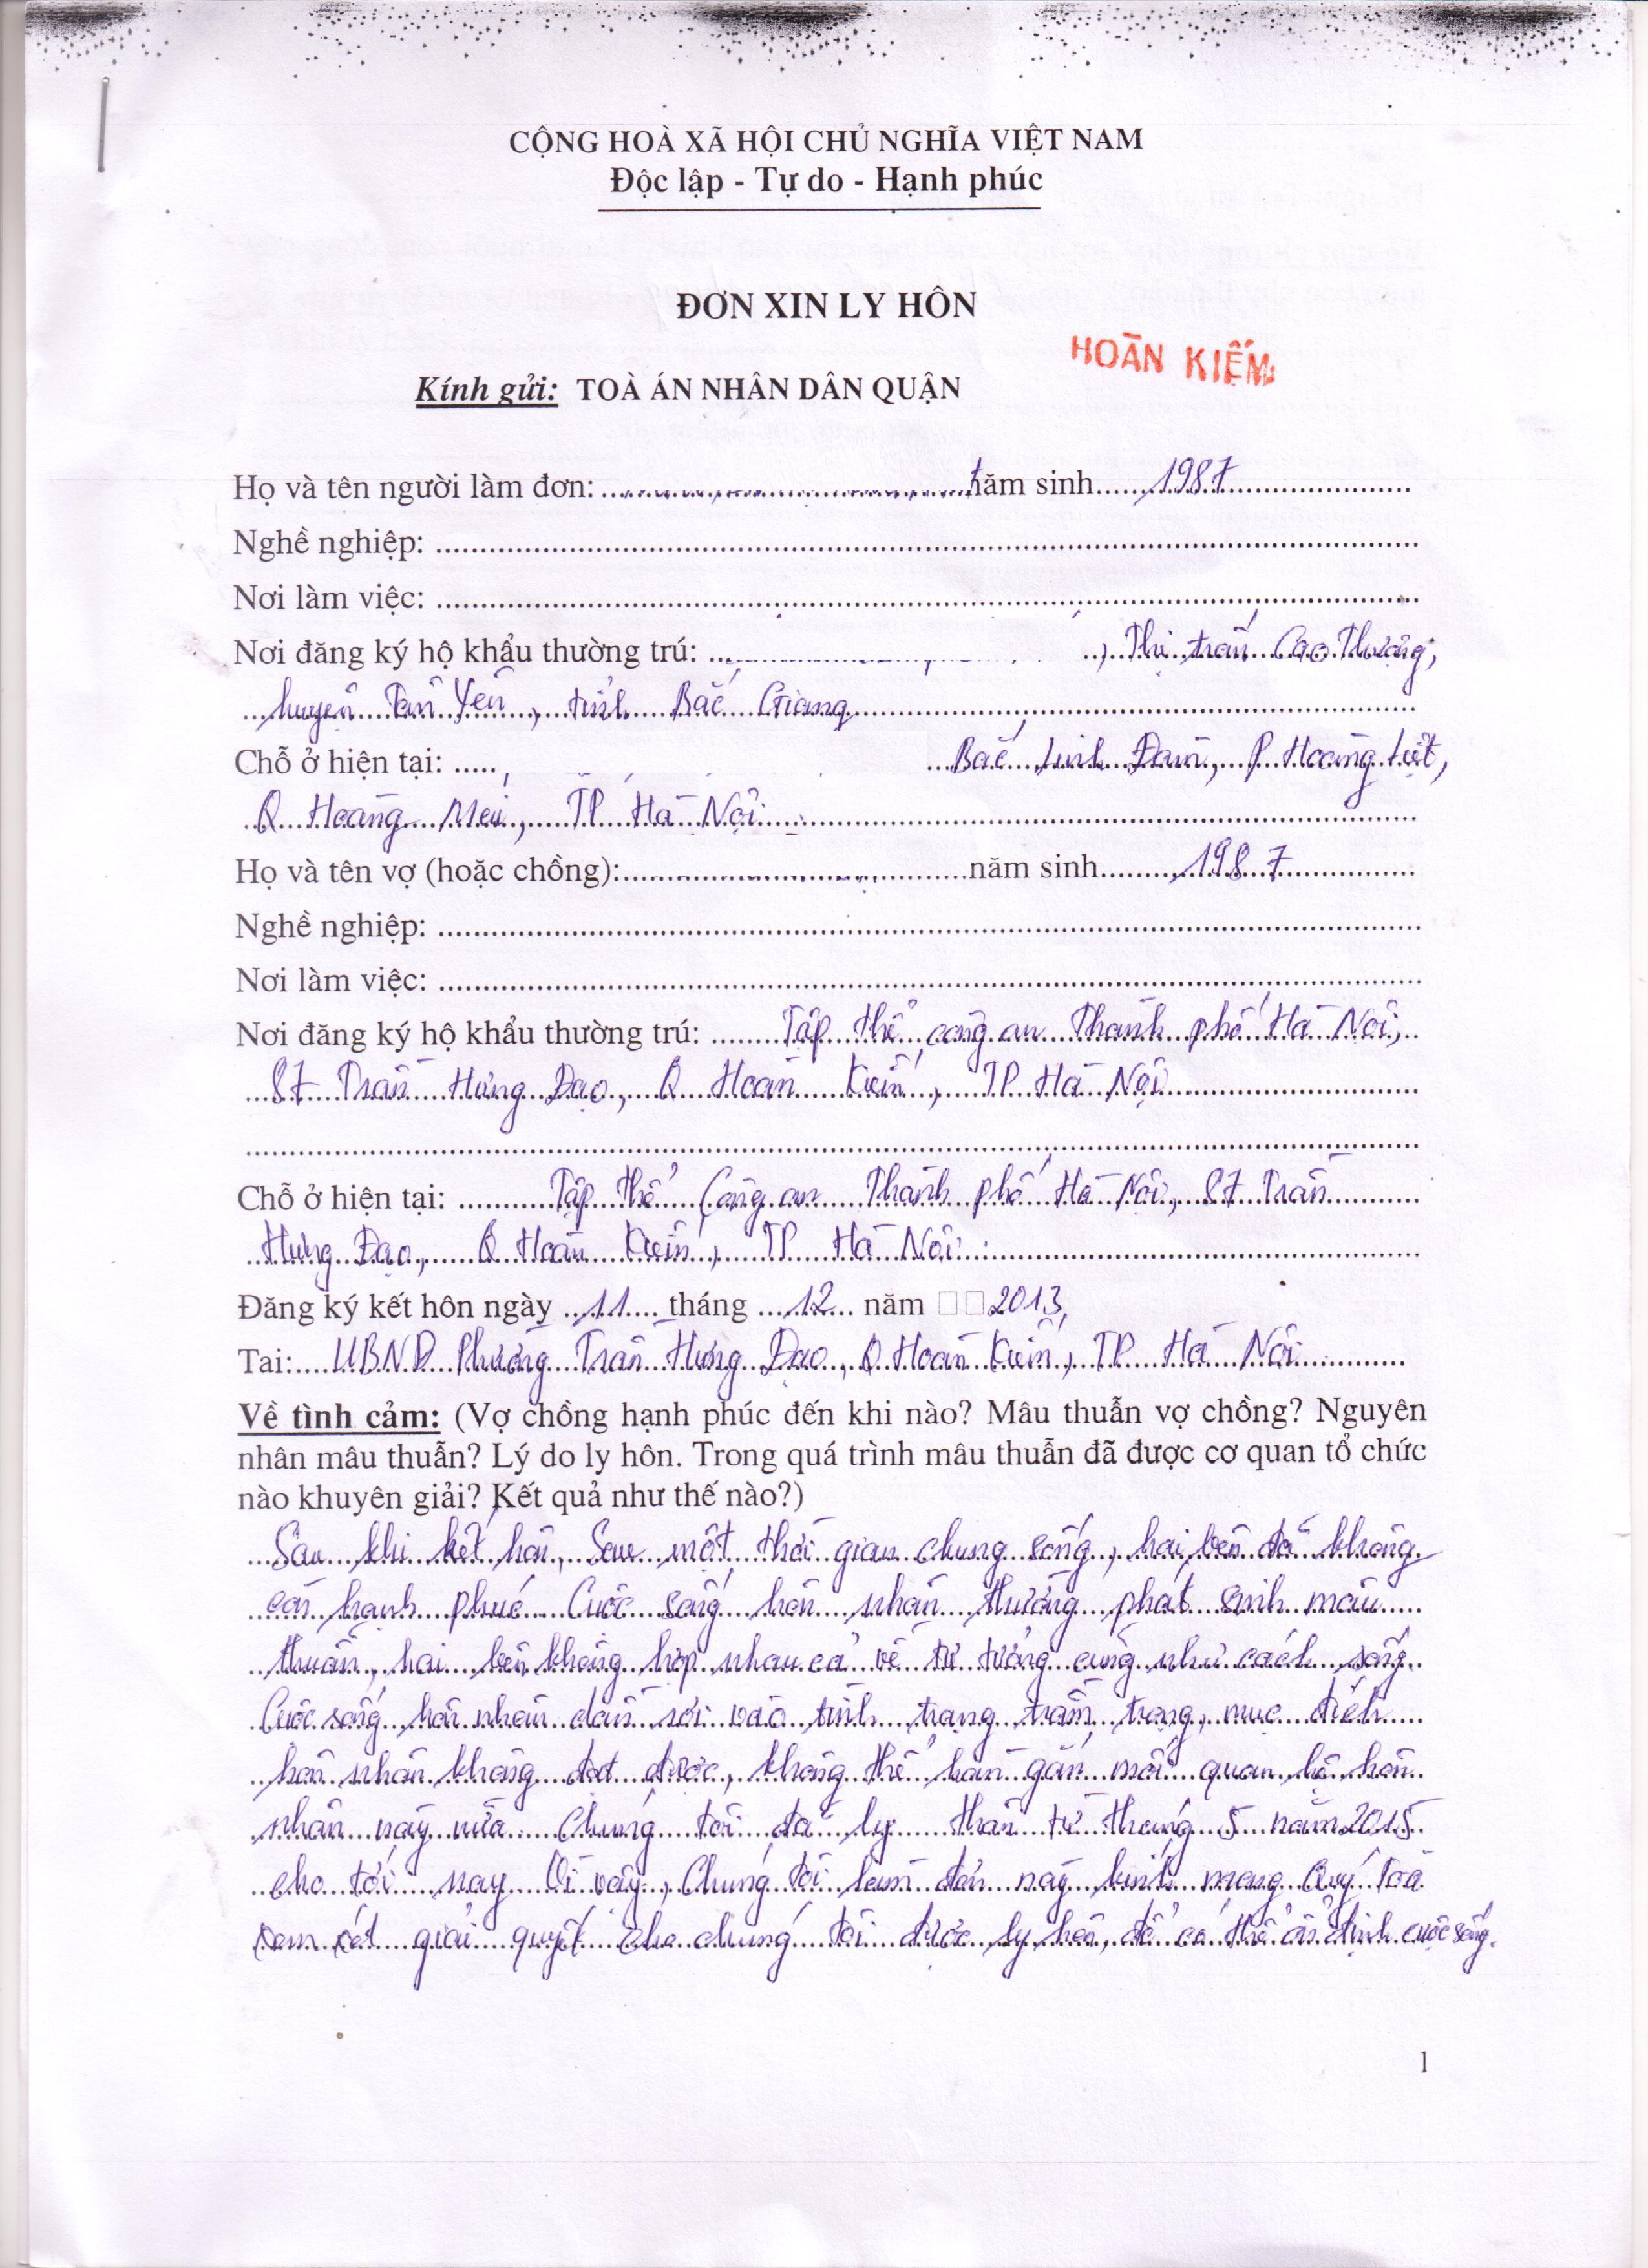 CỘNG HOÀ XÃ HỘI CHỦ NGHĨA VIỆT NAM
Độc lập - Tự do - Hạnh phúc
ĐƠN XIN LY HÔN
HOÀN KIẾM
Kính gửi: TOÀ ÁN NHÂN DÂN QUẬN
Họ và tên người làm đơn: năm sinh 1987
Nghề nghiệp:
Nơi làm việc:
Nơi đăng ký hộ khẩu thường trú: , Thị trấn Cao Thượng,
huyện Tân Yên, tỉnh Bắc Giang
Chỗ ở hiện tại: Bắc Linh Đàm, P Hoàng Liệt,
Q Hoàng Mai, TP Hà Nội
Họ và tên vợ (hoặc chồng): năm sinh 1987
Nghề nghiệp:
Nơi làm việc:
Nơi đăng ký hộ khẩu thường trú: Tập thể công an Thành phố Hà Nội,
87 Trần Hưng Đạo, Q Hoàn Kiếm, TP Hà Nội
Chỗ ở hiện tại: Tập thể Công an Thành phố Hà Nội, 87 Trần
Hưng Đạo, Q Hoàn Kiếm, TP Hà Nội
Đăng ký kết hôn ngày 11 tháng 12 năm □□2013,
Tai: UBND Phường Trần Hưng Đạo, Q Hoàn Kiếm, TP Hà Nội
Về tình cảm: (Vợ chồng hạnh phúc đến khi nào? Mâu thuẫn vợ chồng? Nguyên
nhân mâu thuẫn? Lý do ly hôn. Trong quá trình mâu thuẫn đã được cơ quan tổ chức
nào khuyên giải? Kết quả như thế nào?)
Sau khi kết hôn, Sau một thời gian chung sống, hai bên đã không
còn hạnh phúc Cuộc sống hôn nhân thường phát sinh mâu
thuẫn, hai bên không hợp nhau cả về tư tưởng cũng như cách sống.
Cuộc sống hôn nhân dần rơi vào tình trạng trầm trọng, mục đích
hôn nhân không đạt được, không thể hàn gắn mối quan hệ hôn
nhân này nữa. Chúng tôi đã ly thân từ tháng 5 năm 2015
cho tới nay Vì vậy, Chúng tôi làm đơn này kính mong Quý Toà
xem xét giải quyết cho chúng tôi được ly hôn, để có thể ổn định cuộc sống.
1